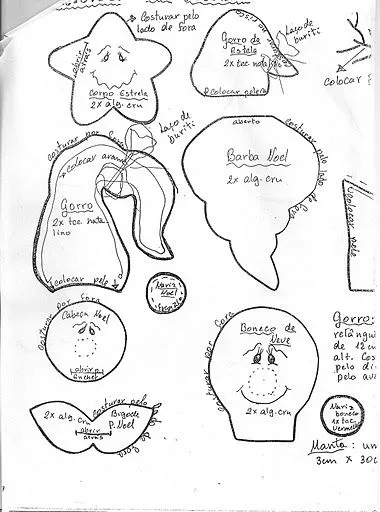 → Costurar pelo
lado de fora
abrir
atrás
Corpo Estrela
2x alg. cru
costurar por fora
Gorro da
Estela
2x tec. natalino
Colocar pelere
Laço de
buriti
colocar
costurar por fora
→ colocar arame
Laço de
buriti
Gorro
2x tec. nata
lino
colocar pele
aberto
costurar pelo lado de fora
Barba Noel
2x alg. cru
colocar pele
Nariz
Noel
franzido
costurar por fora
Cabeça Noel
abrir p/
encher
costurar por fora
Boneco de
Neve
2x alg. cru
Gorro:
retângu
de 12 cm
alt. Cos
pelo di
pelo av
Nariz
boneco
1x tec.
vermelho
Manta: um
3cm x 30c
2x alg. cru
costurar pelo lado de fora
Bigode
P. Noel
abrir
atrás